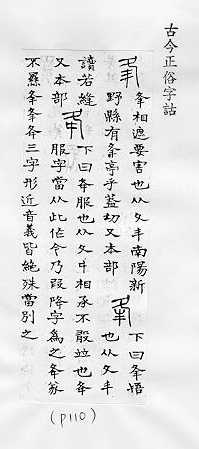 古今正俗字詁
夆相遮要害也从夂丰南陽新
野縣有夆亭乎蓋切又本部
下曰夆啎
也从夂丰
讀若縫
又本部
下曰夅服也从夂㐄相承不敢竝也夅
服字當从此作今乃叚降字為之夅
不㬎夆夆夅三字形近音義皆絕殊當別之
(P110)